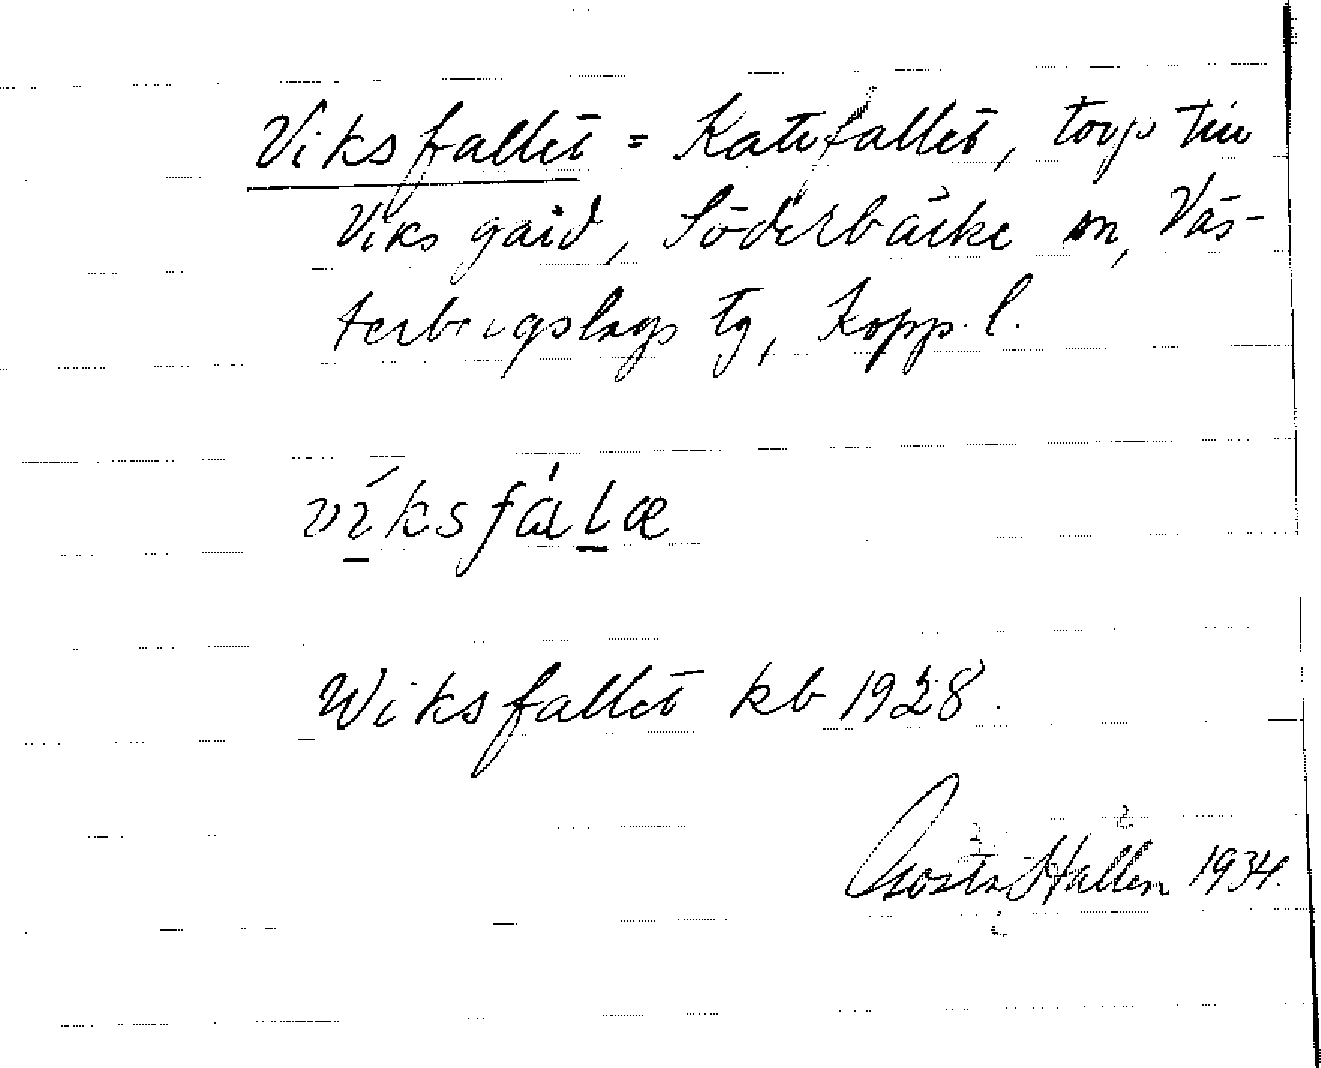 Viksfallet = Katefallet, torp till
Viks gård, Söderbärke sn, Väs-
terbergslags tg, Kopp. l.
víksfálæ
Wiksfallet kb 1928.
Gösta Hallen 1934.